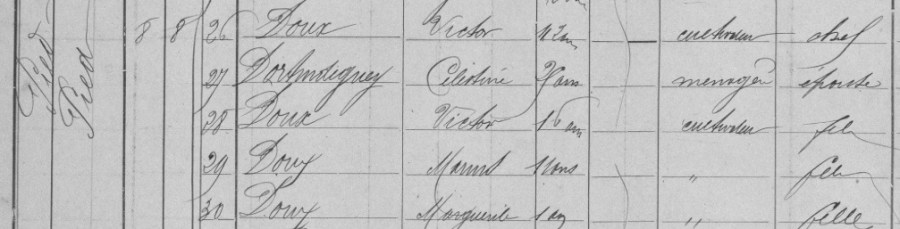 Pied
Pied
8 8 26 Doux Victor 42 ans — cultivateur chef
27 Célestine ans menagère épouse
28 Doux Victor 16 ans cultivateur fils
29 Doux Marius 11 ans " fils
30 Doux Marguerite 1 an " fille